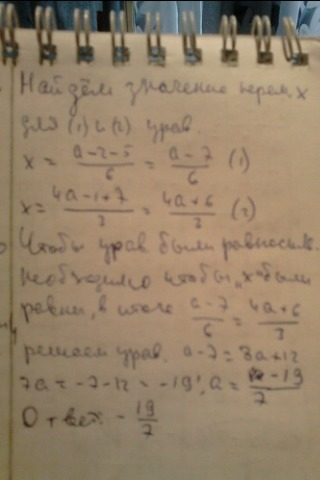 Найдём значение перем. x
для (1) и (2) урав.
x = (a-2-5)/6 = (a-7)/6 (1)
x = (4a-1+7)/3 = (4a+6)/3 (2)
Чтобы урав были равносил.
необходимо чтобы "x" были
равны, в итоге (a-7)/6 = (4a+6)/3
решаем урав. a-7 = 8a+12
7a = -7-12 = -19; a = -19/7
Ответ: -19/7